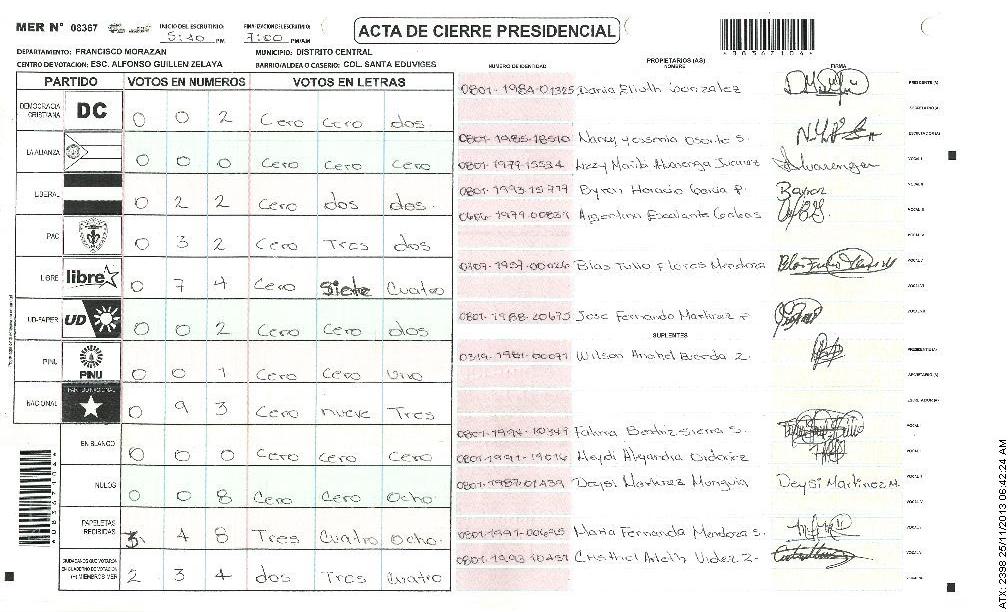 MER N° 08367 INICIO DEL ESCRUTINIO: 5:20 PM FINALIZACION ELESCRUTINIO: 7:00 PM/AM
ACTA DE CIERRE PRESIDENCIAL
A08367104A
DEPARTAMENTO: FRANCISCO MORAZAN MUNICIPIO: DISTRITO CENTRAL
CENTRO DE VOTACION: ESC. ALFONSO GUILLEN ZELAYA BARRIO/ALDEA O CASERIO: COL. SANTA EDUVIGES
PARTIDO VOTOS EN NUMEROS VOTOS EN LETRAS
DEMOCRACIA CRISTIANA DC 0 0 2 Cero Cero dos
LA ALIANZA 0 0 0 Cero Cero Cero
LIBERAL 0 2 2 Cero dos dos.
PAC 0 3 2 Cero Tres dos
LIBRE libre 0 7 4 Cero Siete Cuatro
UD-FAPER UD 0 0 2 Cero Cero dos
PINU PINU 0 0 1 Cero Cero Uno
NACIONAL PARTIDO NACIONAL 0 9 3 Cero nueve Tres
EN BLANCO 0 0 0 Cero Cero Cero
NULOS 0 0 8 Cero Cero Ocho.
PAPELETAS RECIBIDAS 3 4 8 Tres Cuatro Ocho.
CIUDADANOS QUE VOTARON EN CUADERNO DE VOTACION (+) MIEMBROS MER 2 3 4 dos Tres Cuatro
PROPIETARIOS (AS)
NUMERO DE IDENTIDAD NOMBRE FIRMA
0801-1984-01325 Dania Elieth Gonzalez PRESIDENTE(A)
SECRETARIO(A)
0801-1985-18510 Nancy Yosenia Osorto S. ESCRUTADOR(A)
0801-1979-15534 VOCAL I
0801-1993-15979 Byron Horacio Garcia P. Byron VOCAL II
Argentina Escalante VOCAL III
VOCAL IV
Blas Tulio Flores Mendoza VOCAL V
VOCAL VI
0801-1988-20675 Jose Fernando Martinez F VOCAL VII
SUPLENTES
Wilson Anahel PRESIDENTE(A)
SECRETARIO(A)
ESCRUTADOR(A)
0801-1994-10349 Fatima Beatriz Sierra S. VOCAL I
0801-1991-19016 Heydi Alejandra Ordoñez
0801-1987-01439 Deysi Martinez Munguia Deysi Martinez M.
Maria Fernanda Mendoza S.
0801-1993-10457
A08367104A
ATX: 2398 25/11/2013 06:42:24 AM